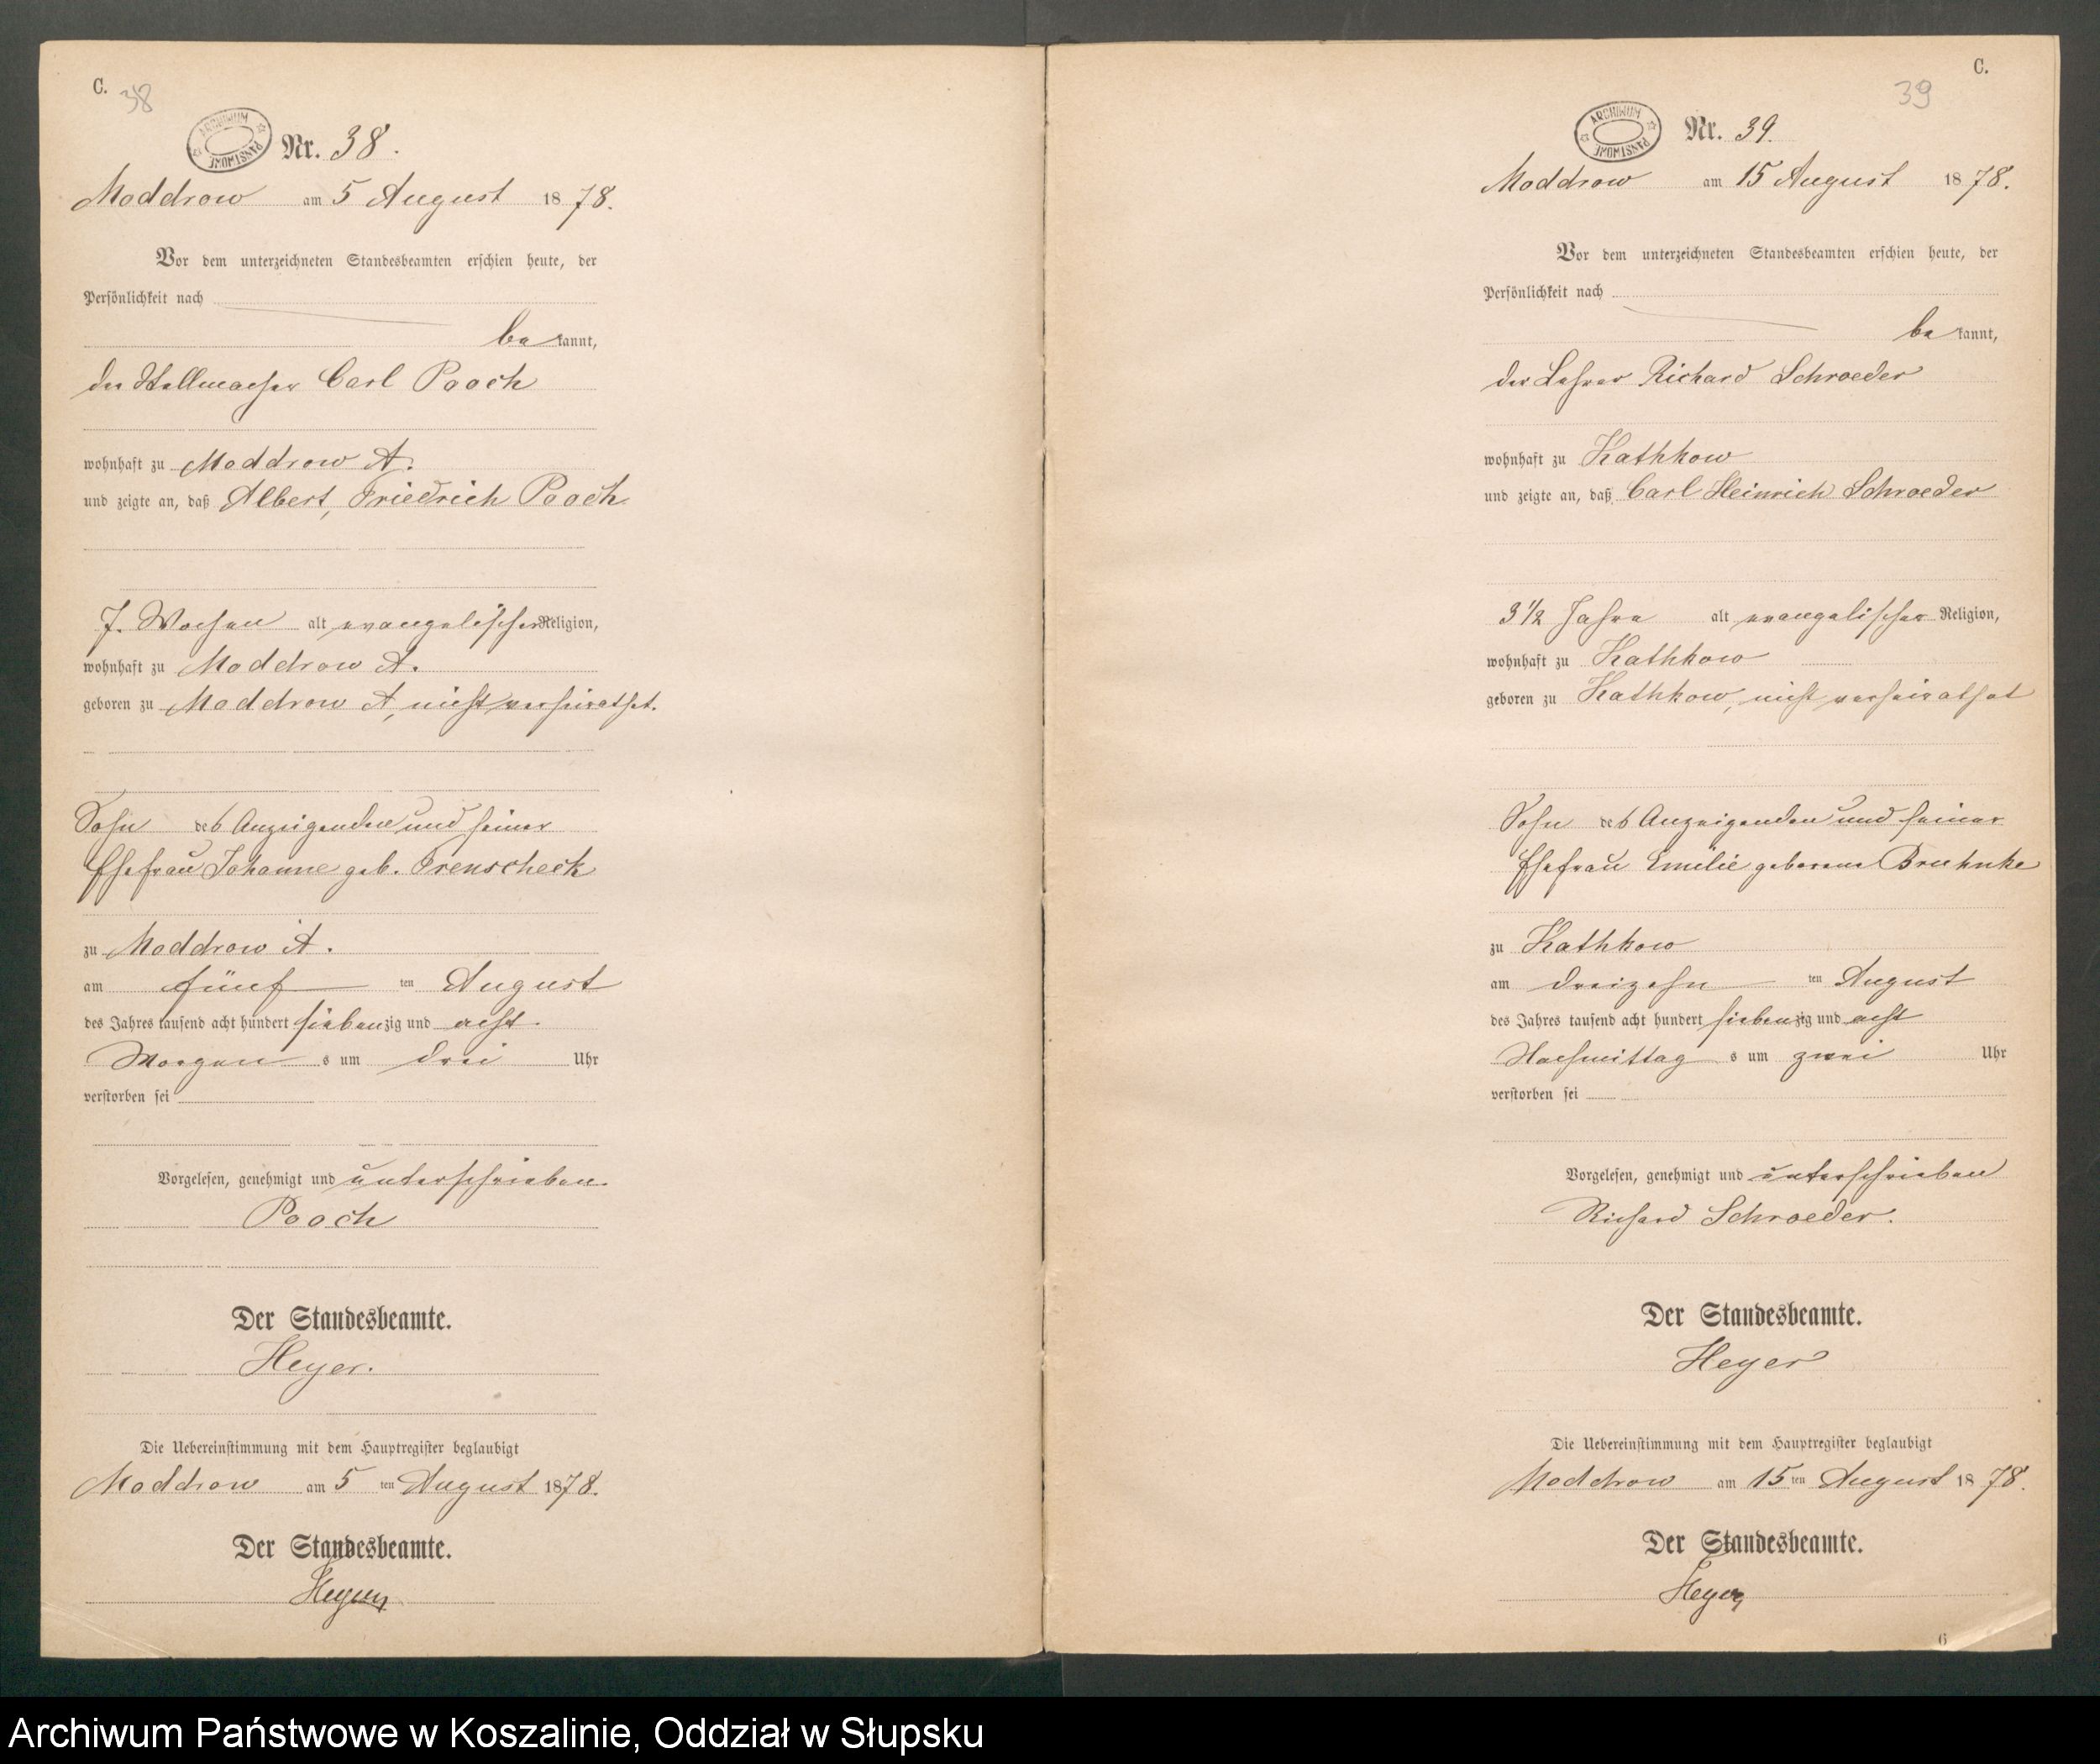 C.
38
ARCHIWUM PAŃSTWOWE
Nr. 38.
Moddrow am 5 August 1878.
Vor dem unterzeichneten Standesbeamten erschien heute, der
Persönlichkeit nach
bekannt,
der Stellmacher Carl Pooch
wohnhaft zu Moddrow A.
und zeigte an, daß Albert, Friedrich Pooch
7. Wochen alt evangelischer Religion,
wohnhaft zu Moddrow A.
geboren zu Moddrow A, nicht verheirathet.
Sohn des Anzeigenden und seiner
Ehefrau Johanne geb. Trenscheck
zu Moddrow A.
am fünften August
des Jahres tausend acht hundert siebenzig und acht.
Morgens um drei Uhr
verstorben sei
Vorgelesen, genehmigt und unterschrieben.
Pooch
Der Standesbeamte.
Heyer.
Die Uebereinstimmung mit dem Hauptregister beglaubigt
Moddrow am 5ten August 1878.
Der Standesbeamte.
Heyer
C.
39
ARCHIWUM PAŃSTWOWE
Nr. 39.
Moddrow am 15 August 1878.
Vor dem unterzeichneten Standesbeamten erschien heute, der
Persönlichkeit nach
bekannt,
der Lehrer Richard Schroeder
wohnhaft zu Kathkow
und zeigte an, daß Carl Heinrich Schroeder
3 1/2 Jahre alt evangelischer Religion,
wohnhaft zu Kathkow
geboren zu Kathkow, nicht verheirathet
Sohn des Anzeigenden und seiner
Ehefrau Emilie geborene Bruhnke
zu Kathkow
am dreizehnten August
des Jahres tausend acht hundert siebenzig und acht
Nachmittags um zwei Uhr
verstorben sei
Vorgelesen, genehmigt und unterschrieben
Richard Schroeder.
Der Standesbeamte.
Heyer
Die Uebereinstimmung mit dem Hauptregister beglaubigt
Moddrow am 15ten August 1878.
Der Standesbeamte.
Heyer
6
Archiwum Państwowe w Koszalinie, Oddział w Słupsku